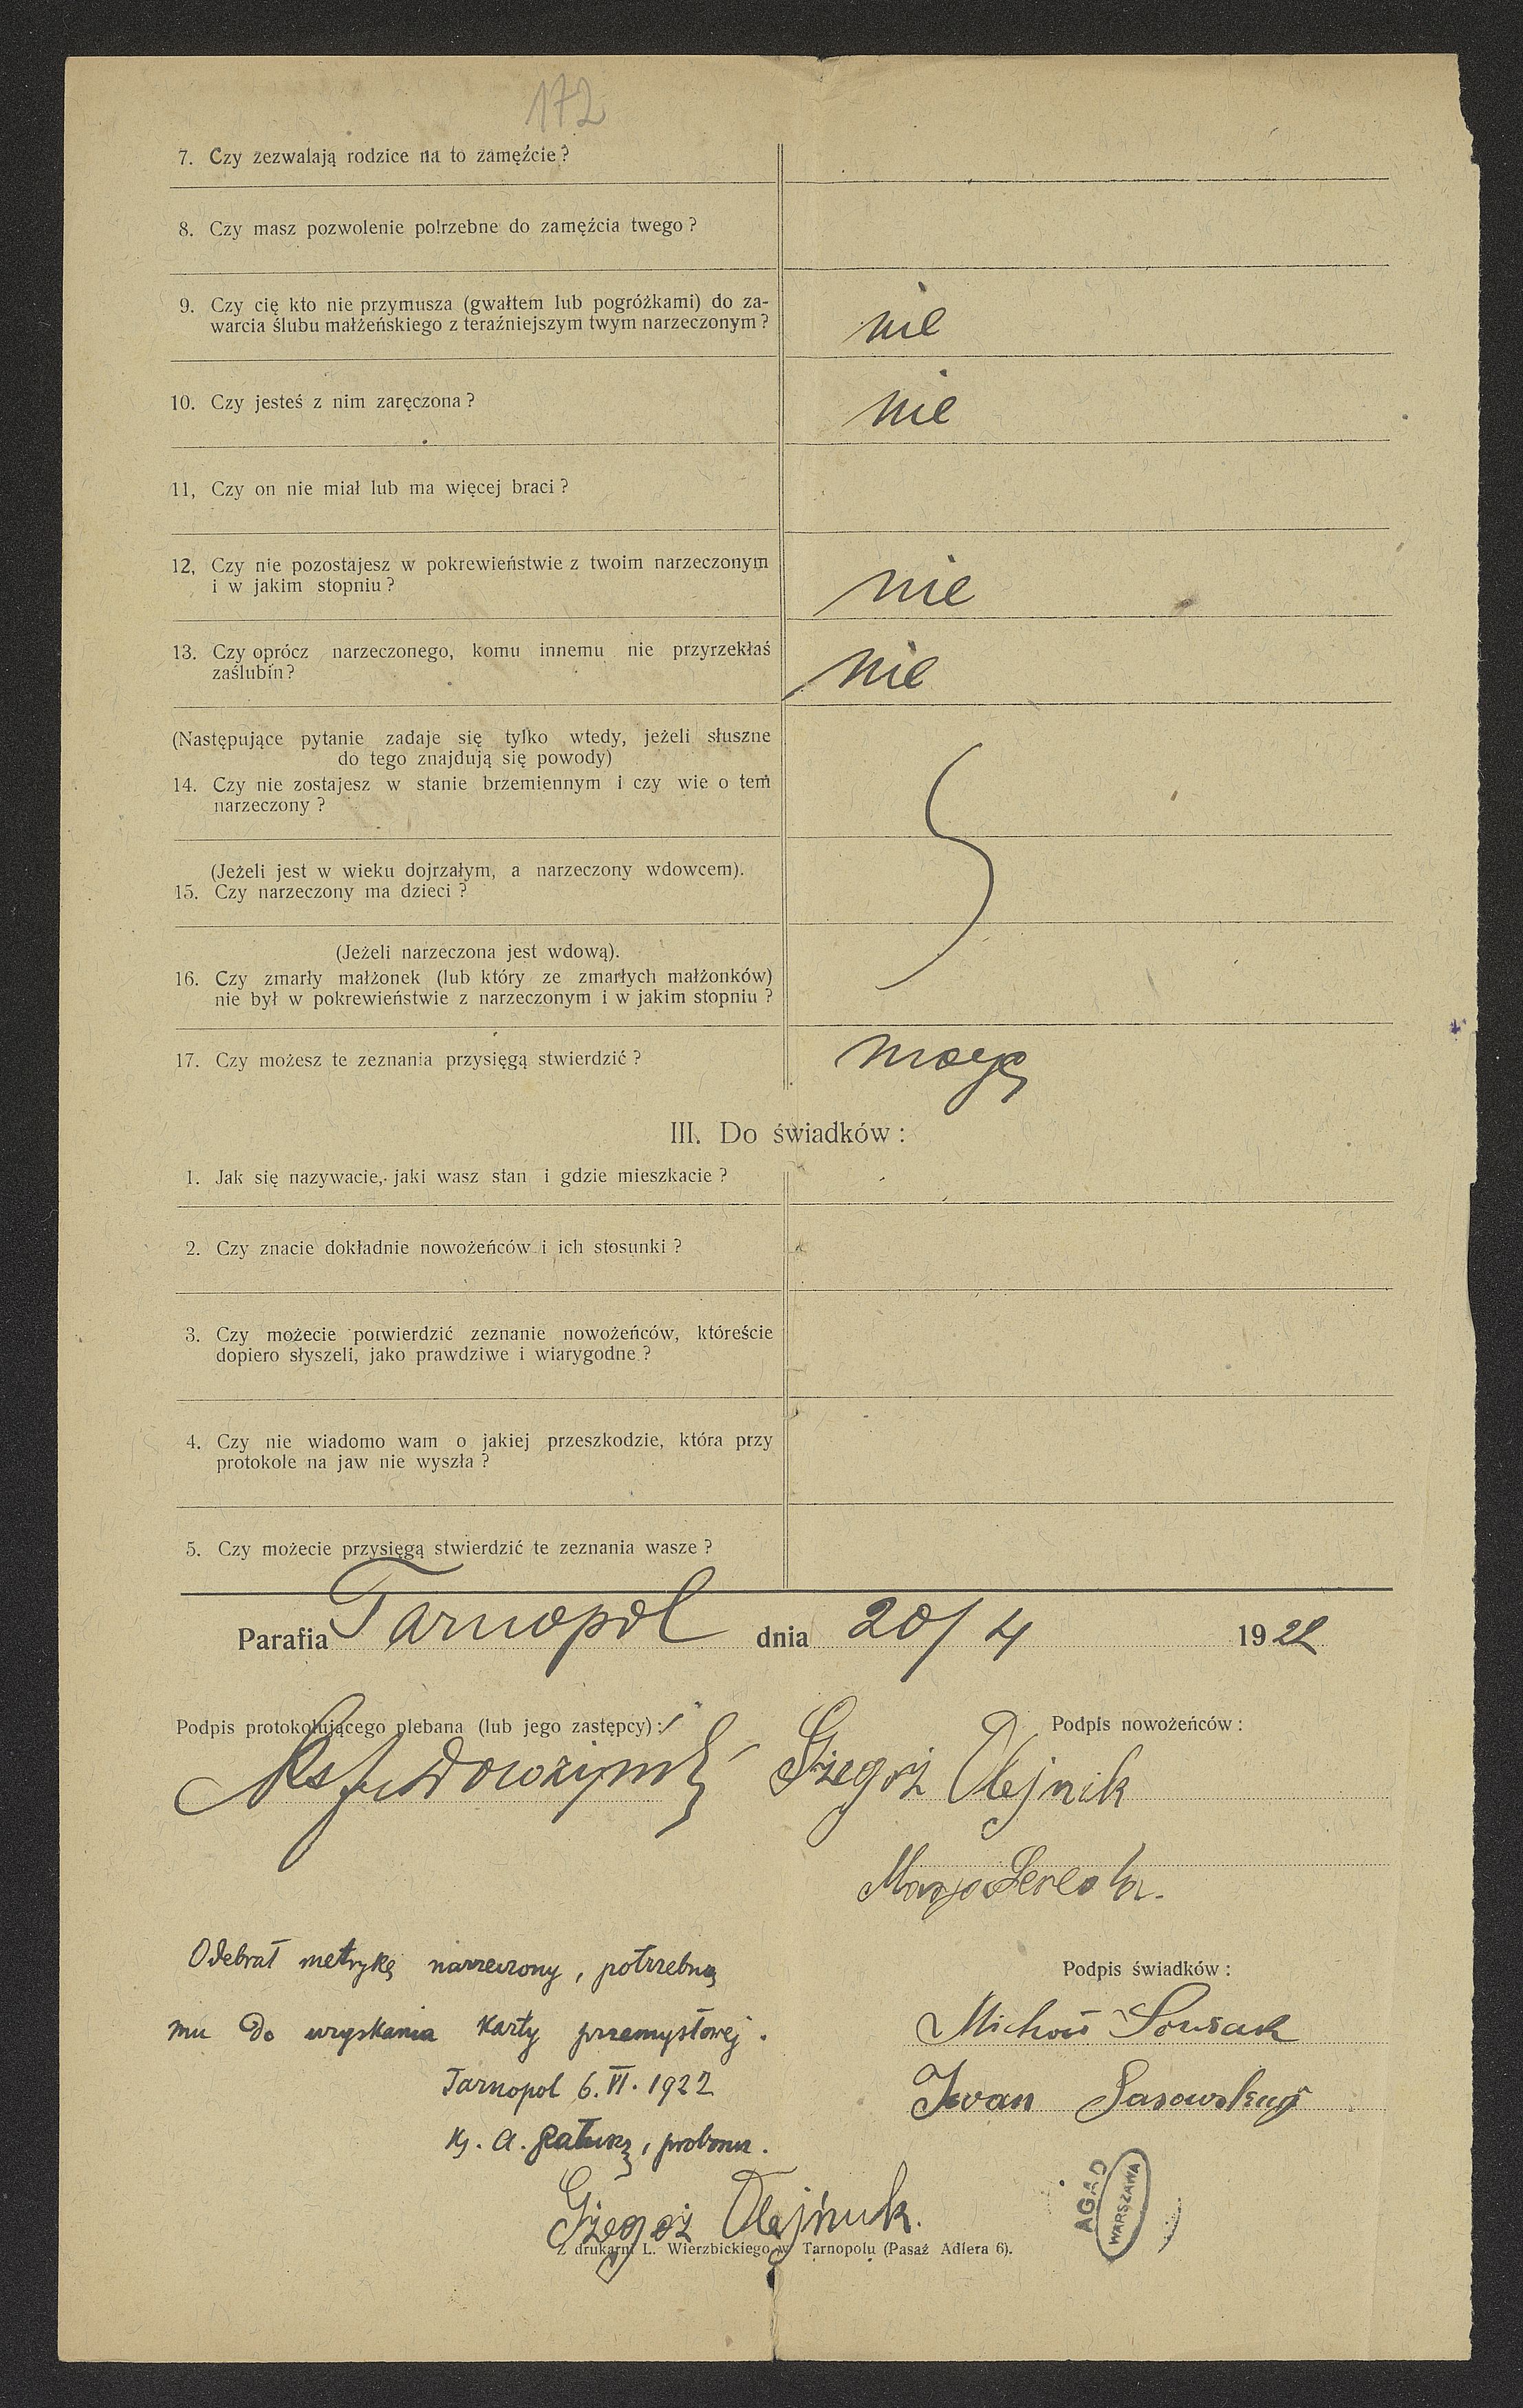 172
7. Czy zezwalają rodzice na to zamęźcie?
8. Czy masz pozwolenie potrzebne do zamęźcia twego?
9. Czy cię kto nie przymusza (gwałtem lub pogróżkami) do za-
warcia ślubu małżeńskiego z teraźniejszym twym narzeczonym?
nie
10. Czy jesteś z nim zaręczona?
nie
11, Czy on nie miał lub ma więcej braci?
12, Czy nie pozostajesz w pokrewieństwie z twoim narzeczonym
i w jakim stopniu?
nie
13. Czy oprócz narzeczonego, komu innemu nie przyrzekłaś
zaślubin?
nie
(Następujące pytanie zadaje się tylko wtedy, jeżeli słuszne
do tego znajdują się powody)
14. Czy nie zostajesz w stanie brzemiennym i czy wie o tem
narzeczony?
(Jeżeli jest w wieku dojrzałym, a narzeczony wdowcem).
15. Czy narzeczony ma dzieci?
(Jeżeli narzeczona jest wdową).
16. Czy zmarły małżonek (lub który ze zmarłych małżonków)
nie był w pokrewieństwie z narzeczonym i w jakim stopniu?
17. Czy możesz te zeznania przysięgą stwierdzić?
mogę
III. Do świadków:
1. Jak się nazywacie, jaki wasz stan i gdzie mieszkacie?
2. Czy znacie dokładnie nowożeńców i ich stosunki?
3. Czy możecie potwierdzić zeznanie nowożeńców, któreście
dopiero słyszeli, jako prawdziwe i wiarygodne?
4. Czy nie wiadomo wam o jakiej przeszkodzie, która przy
protokole na jaw nie wyszła?
5. Czy możecie przysięgą stwierdzić te zeznania wasze?
Parafia Tarnopol dnia 20/4 1922
Podpis protokołującego plebana (lub jego zastępcy):
Podpis nowożeńców:
Gżegoż Olejnik
Marja
Odebrał metrykę narzeczony, potrzebną
mu do uzyskania karty przemysłowej.
Tarnopol 6.VI.1922
Ks. A.
Gżegoż Olejnik.
Podpis świadków:
Iwan
AGAD
WARSZAWA
Z drukarni L. Wierzbickiego w Tarnopolu (Pasaż Adlera 6).